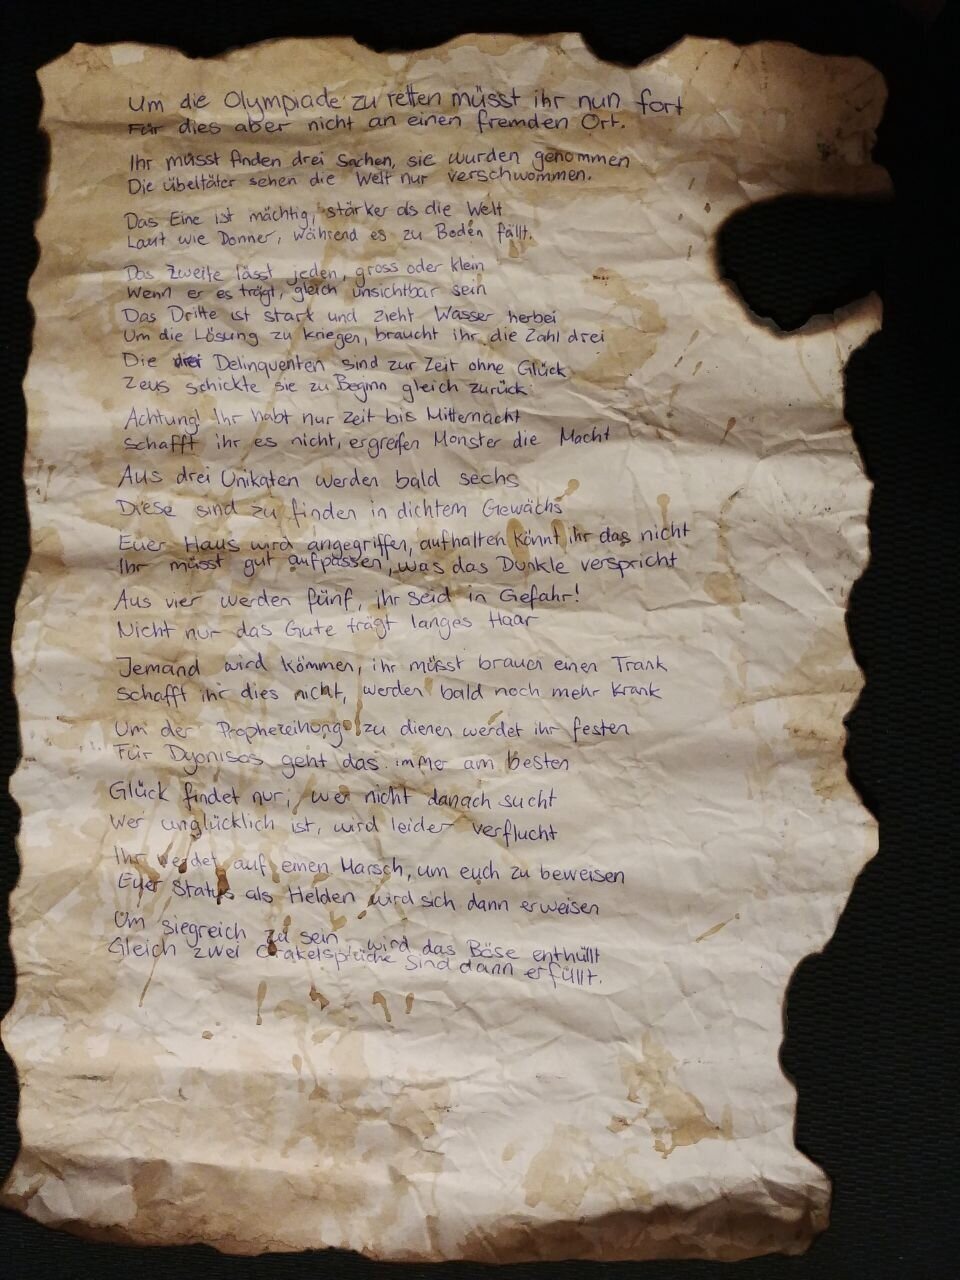 Um die Olympiade zu retten müsst ihr nun fort
Für dies aber nicht an einen fremden Ort.
Ihr müsst finden drei Sachen, sie wurden genommen
Die Übeltäter sehen die Welt nur verschwommen.
Das Eine ist mächtig, stärker als die Welt
Laut wie Donner, während es zu Boden fällt.
Das Zweite lässt jeden, gross oder klein
Wenn er es trägt, gleich unsichtbar sein
Das Dritte ist stark und zieht Wasser herbei
Um die Lösung zu kriegen, braucht ihr die Zahl drei
Die drei Delinquenten sind zur Zeit ohne Glück
Zeus schickte sie zu Beginn gleich zurück
Achtung! Ihr habt nur Zeit bis Mitternacht
Schafft ihr es nicht, ergreifen Monster die Macht
Aus drei Unikaten werden bald sechs
Diese sind zu finden in dichtem Gewächs
Euer Haus wird angegriffen, aufhalten könnt ihr das nicht
Ihr müsst gut aufpassen, was das Dunkle verspricht
Aus vier werden fünf, ihr seid in Gefahr!
Nicht nur das Gute trägt langes Haar
Jemand wird kommen, ihr müsst brauen einen Trank
Schafft ihr dies nicht, werden bald noch mehr krank
Um der Prophezeihung zu dienen werdet ihr festen
Für Dyonisos geht das immer am besten
Glück findet nur, wer nicht danach sucht
Wer unglücklich ist, wird leider verflucht
Ihr werdet auf einen Marsch, um euch zu beweisen
Euer Status als Helden wird sich dann erweisen
Um siegreich zu sein wird das Böse enthüllt
Gleich zwei Orakelsprüche sind dann erfüllt.